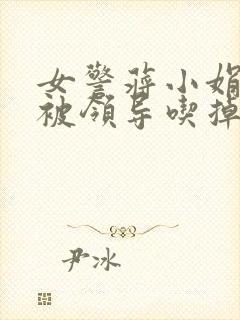 女警蒋小娟
被领导喫掉
尹冰